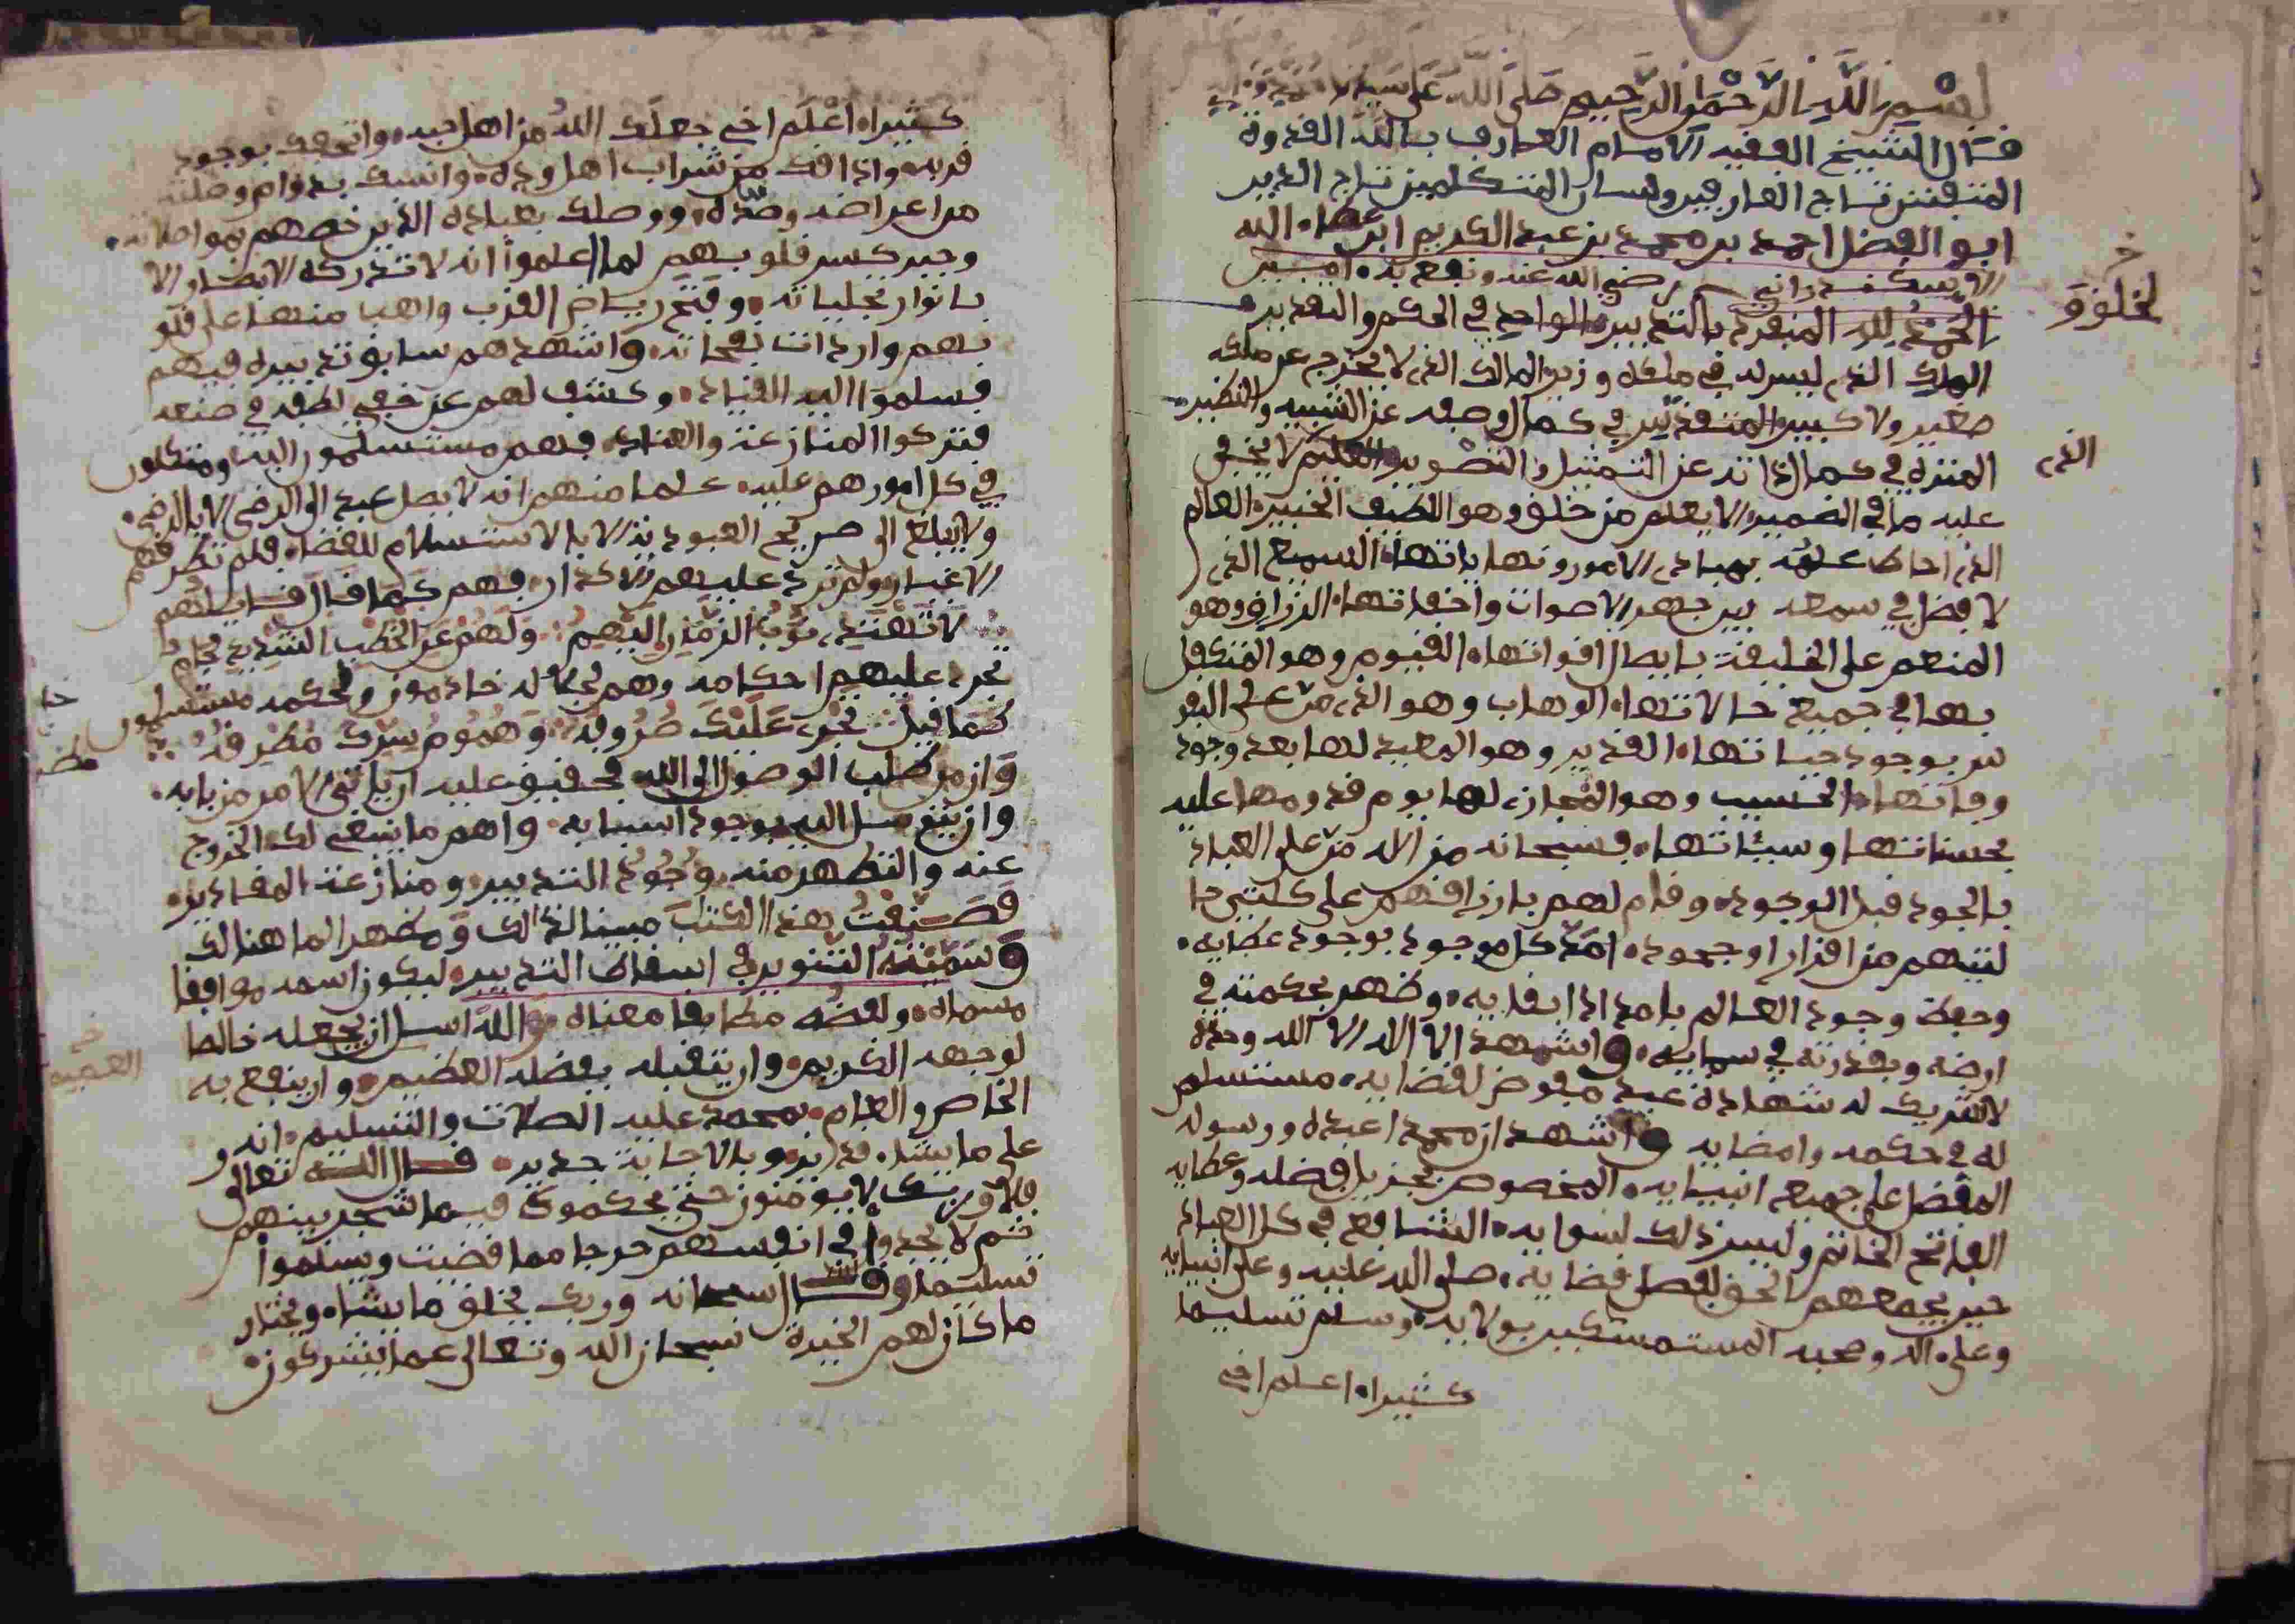 بسم الله الرحمن الرحيم صلى الله على سيدنا
قال الشيخ الفقيه الامام العارف بالله القدوة
المتقنن تاج العارفين ولسان المتكلمين تاج الدين
ابو الفضل احمد بن محمد بن عبد الكريم ابن عطاء الله
الاسكندراني رضي الله عنه ونفع به امين
الحمد لله المنفرد بالتدبير الواحد في الحكم والتقدير
لخلقه
الملك الذي ليس له في ملكه وزير المالك الذي لا يخرج عن ملكه
صغير ولا كبير المتقدس في كمال وصفه عن الشبيه والنظير
المنزه في كمال ذاته عن التمثيل والتصوير العليم لا يخفى
الذي
عليه ما في الضمير الا يعلم من خلق وهو اللطيف الخبير العالم
الذي احاط علمه بمبادي الامور ونهاياتها السميع الذي
لا فضل في سمعه بين جهر الاصوات واخفاتها الرزاق وهو
المنعم على الخليقة بايصال اقواتها القيوم وهو المتكفل
بها في جميع حالاتها الوهاب وهو الذي من على النفو
س بوجود حياتها القدير وهو المعيد لها بعد وجود
وفاتها الحسيب وهو المجازي لها يوم قدومها عليه
بحسناتها وسيئاتها فسبحانه من اله من على العباد
بالجود قبل الوجود وقام لهم بارزاقهم على كلتي حا
لتيهم من اقرار او جحود امد كل موجود بوجود عطايه
وحفظ وجود العالم بامداد ابقايه وظهر بحكمته في
ارضه وبقدرته في سمايه واشهد ان لا اله الا الله وحده
لا شريك له شهادة عبد مفوض لقضايه مستسلم
له في حكمه وامضايه واشهد ان محمدا عبده ورسوله
المفضل على جميع انبيايه المخصوص بجزيل فضله وعطايه
الفاتح الخاتم وليس ذلك لسوايه الشافع في كل العباد
حين يجمعهم الحق لفصل قضايه صلى الله عليه وعلى انبيايه
وعلى اله وصحبه المستمسكين بولايه وسلم تسليما
كثيرا اعلم اخي
كثيرا اعلم اخي جعلك الله من اهل حبه واتحفك بوجود
قربه واذاقك من شراب اهل وده وانسك بدوام وصلته
من اعراضه وصده ووصلك بعباده الذين خصهم بمواصلاته
وجبر كسر قلوبهم لما علموا انه لا تدركه الابصار الا
بانوار تجلياته وفتح رياض القرب واهب منها على قلو
بهم واردات نفحاته واشهدهم سابق تدبيره فيهم
فسلموا اليه القياد وكشف لهم عن خفي لطفه في صنعه
فتركوا المنازعة والعناد فهم مستسلمون اليه ومتكلون
في كل امورهم عليه علما منهم انه لا يصل عبد الى الرضى الا بالرضى
ولا يبلغ الى صريح العبودية الا بالاستسلام للقضاء فلم تطرقهم
الاغيار ولم ترد عليهم الاكدار فهم كما قال قايلهم
لا تهتدي نوب الزمان اليهم ولهم على الخطب الشديد لجام
تجري عليهم احكامه وهم لجلاله خامدون ولحكمه مستسلمون
كما قيل تجري عليك صروفه وهموم سرك مطرقه
وان من طلب الوصول الى الله فحقيق عليه ان ياتي الامر من بابه
وان يتوسل اليه بوجود اسبابه واهم ما ينبغي لك الخروج
عنه والتطهر منه وجود التدبير ومنازعة المقادير
فصنفت هذا الكتاب مبينا لذلك ومظهرا لما هنالك
وسميته التنوير في اسقاط التدبير ليكون اسمه موافقا
مسماه ولفظه مطابقا معناه والله اسال ان يجعله خالصا
لوجهه الكريم وان يتقبله بفضله العظيم وان ينفع به
الخاص والعام بمحمد عليه الصلات والتسليم انه و
على ما يشاء قدير وبالاجابة جدير قال الله تعالى
فلا وربك لا يومنون حتى يحكموك فيما شجر بينهم
ثم لا يجدوا في انفسهم حرجا مما قضيت ويسلموا
تسليما وقال سبحانه وربك يخلق ما يشاء ويختار
ما كان لهم الخيرة سبحان الله وتعالى عما يشركون